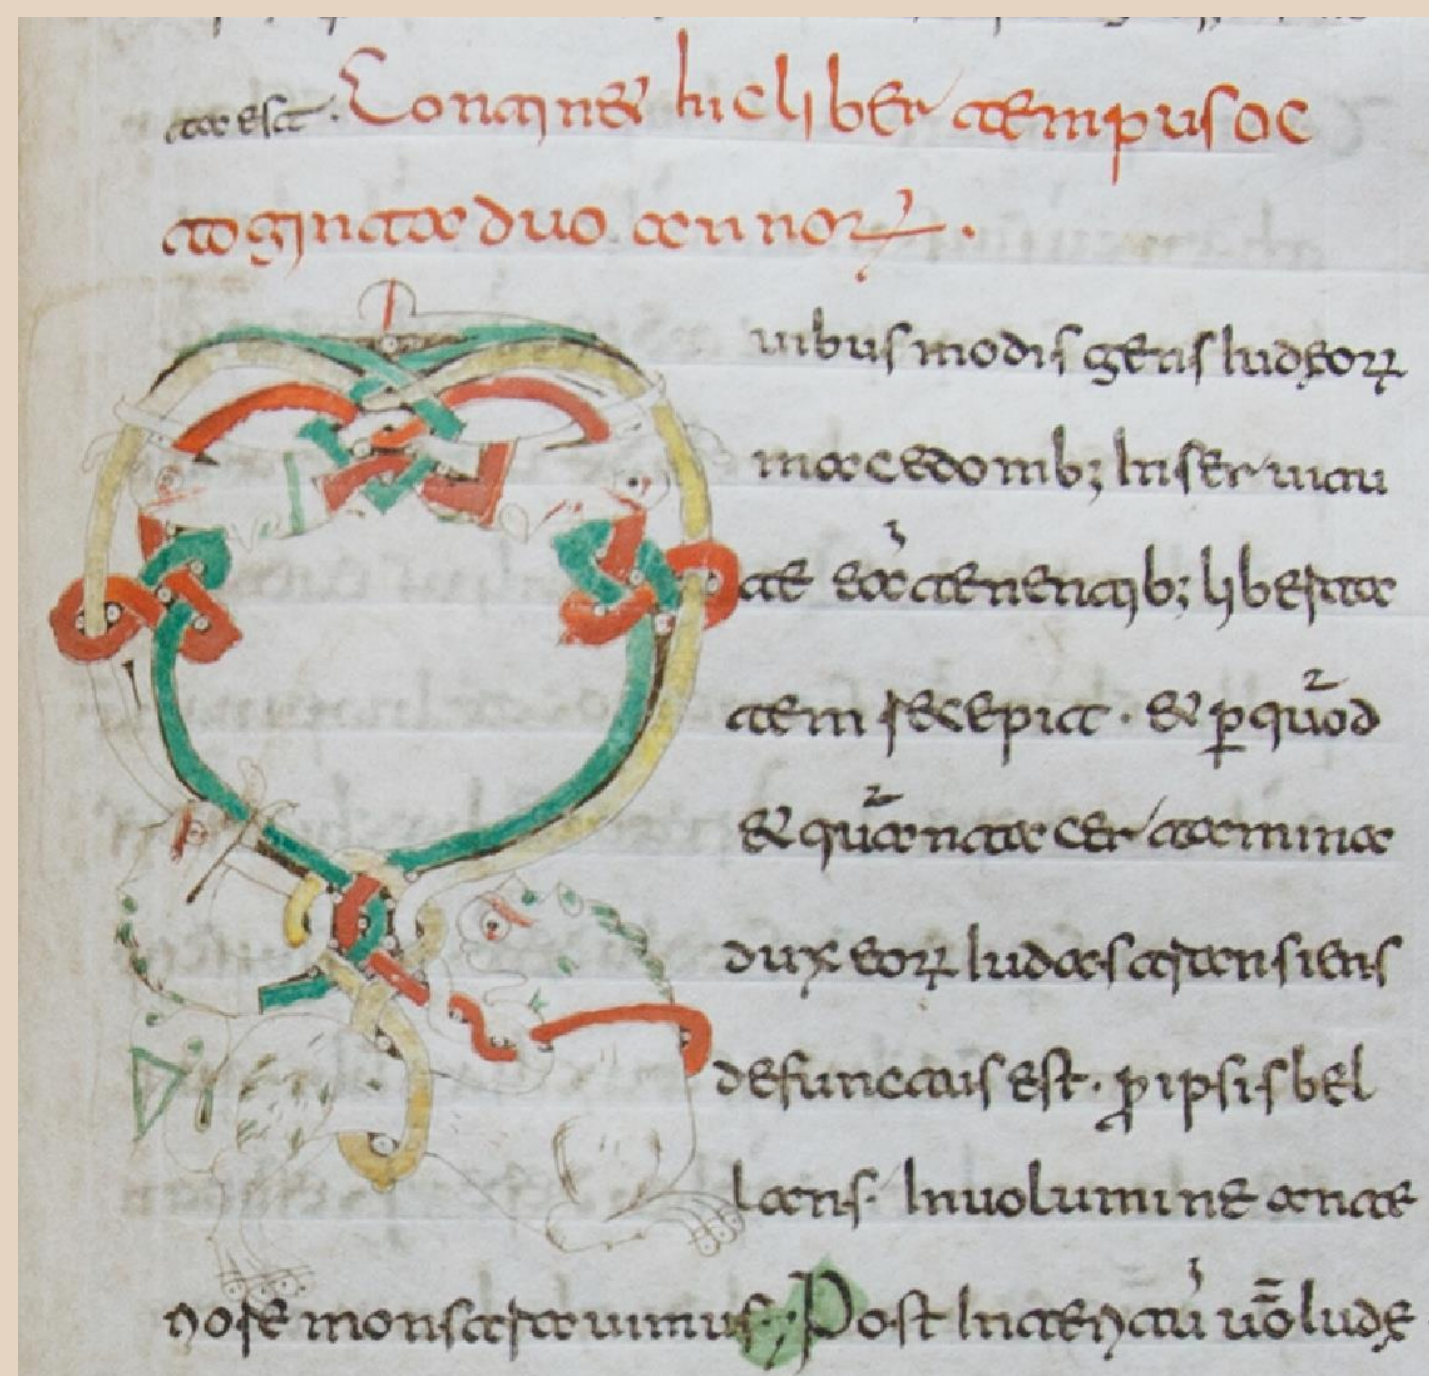 ta est. Continet hic liber tempus oc
toginta duo annorꝝ.
Quibus modis gens Iudęorꝝ
macedonib; In seruitu
te eoꝝ tenentib; liberta
tem recepit. et ꝑ quod
et quanta certamina
dux eorꝝ Iudas
defunctus est. ꝓ ipsis bel
lans. In uolumine ante
riore monstrauimus; Post Interitu uo Iudę